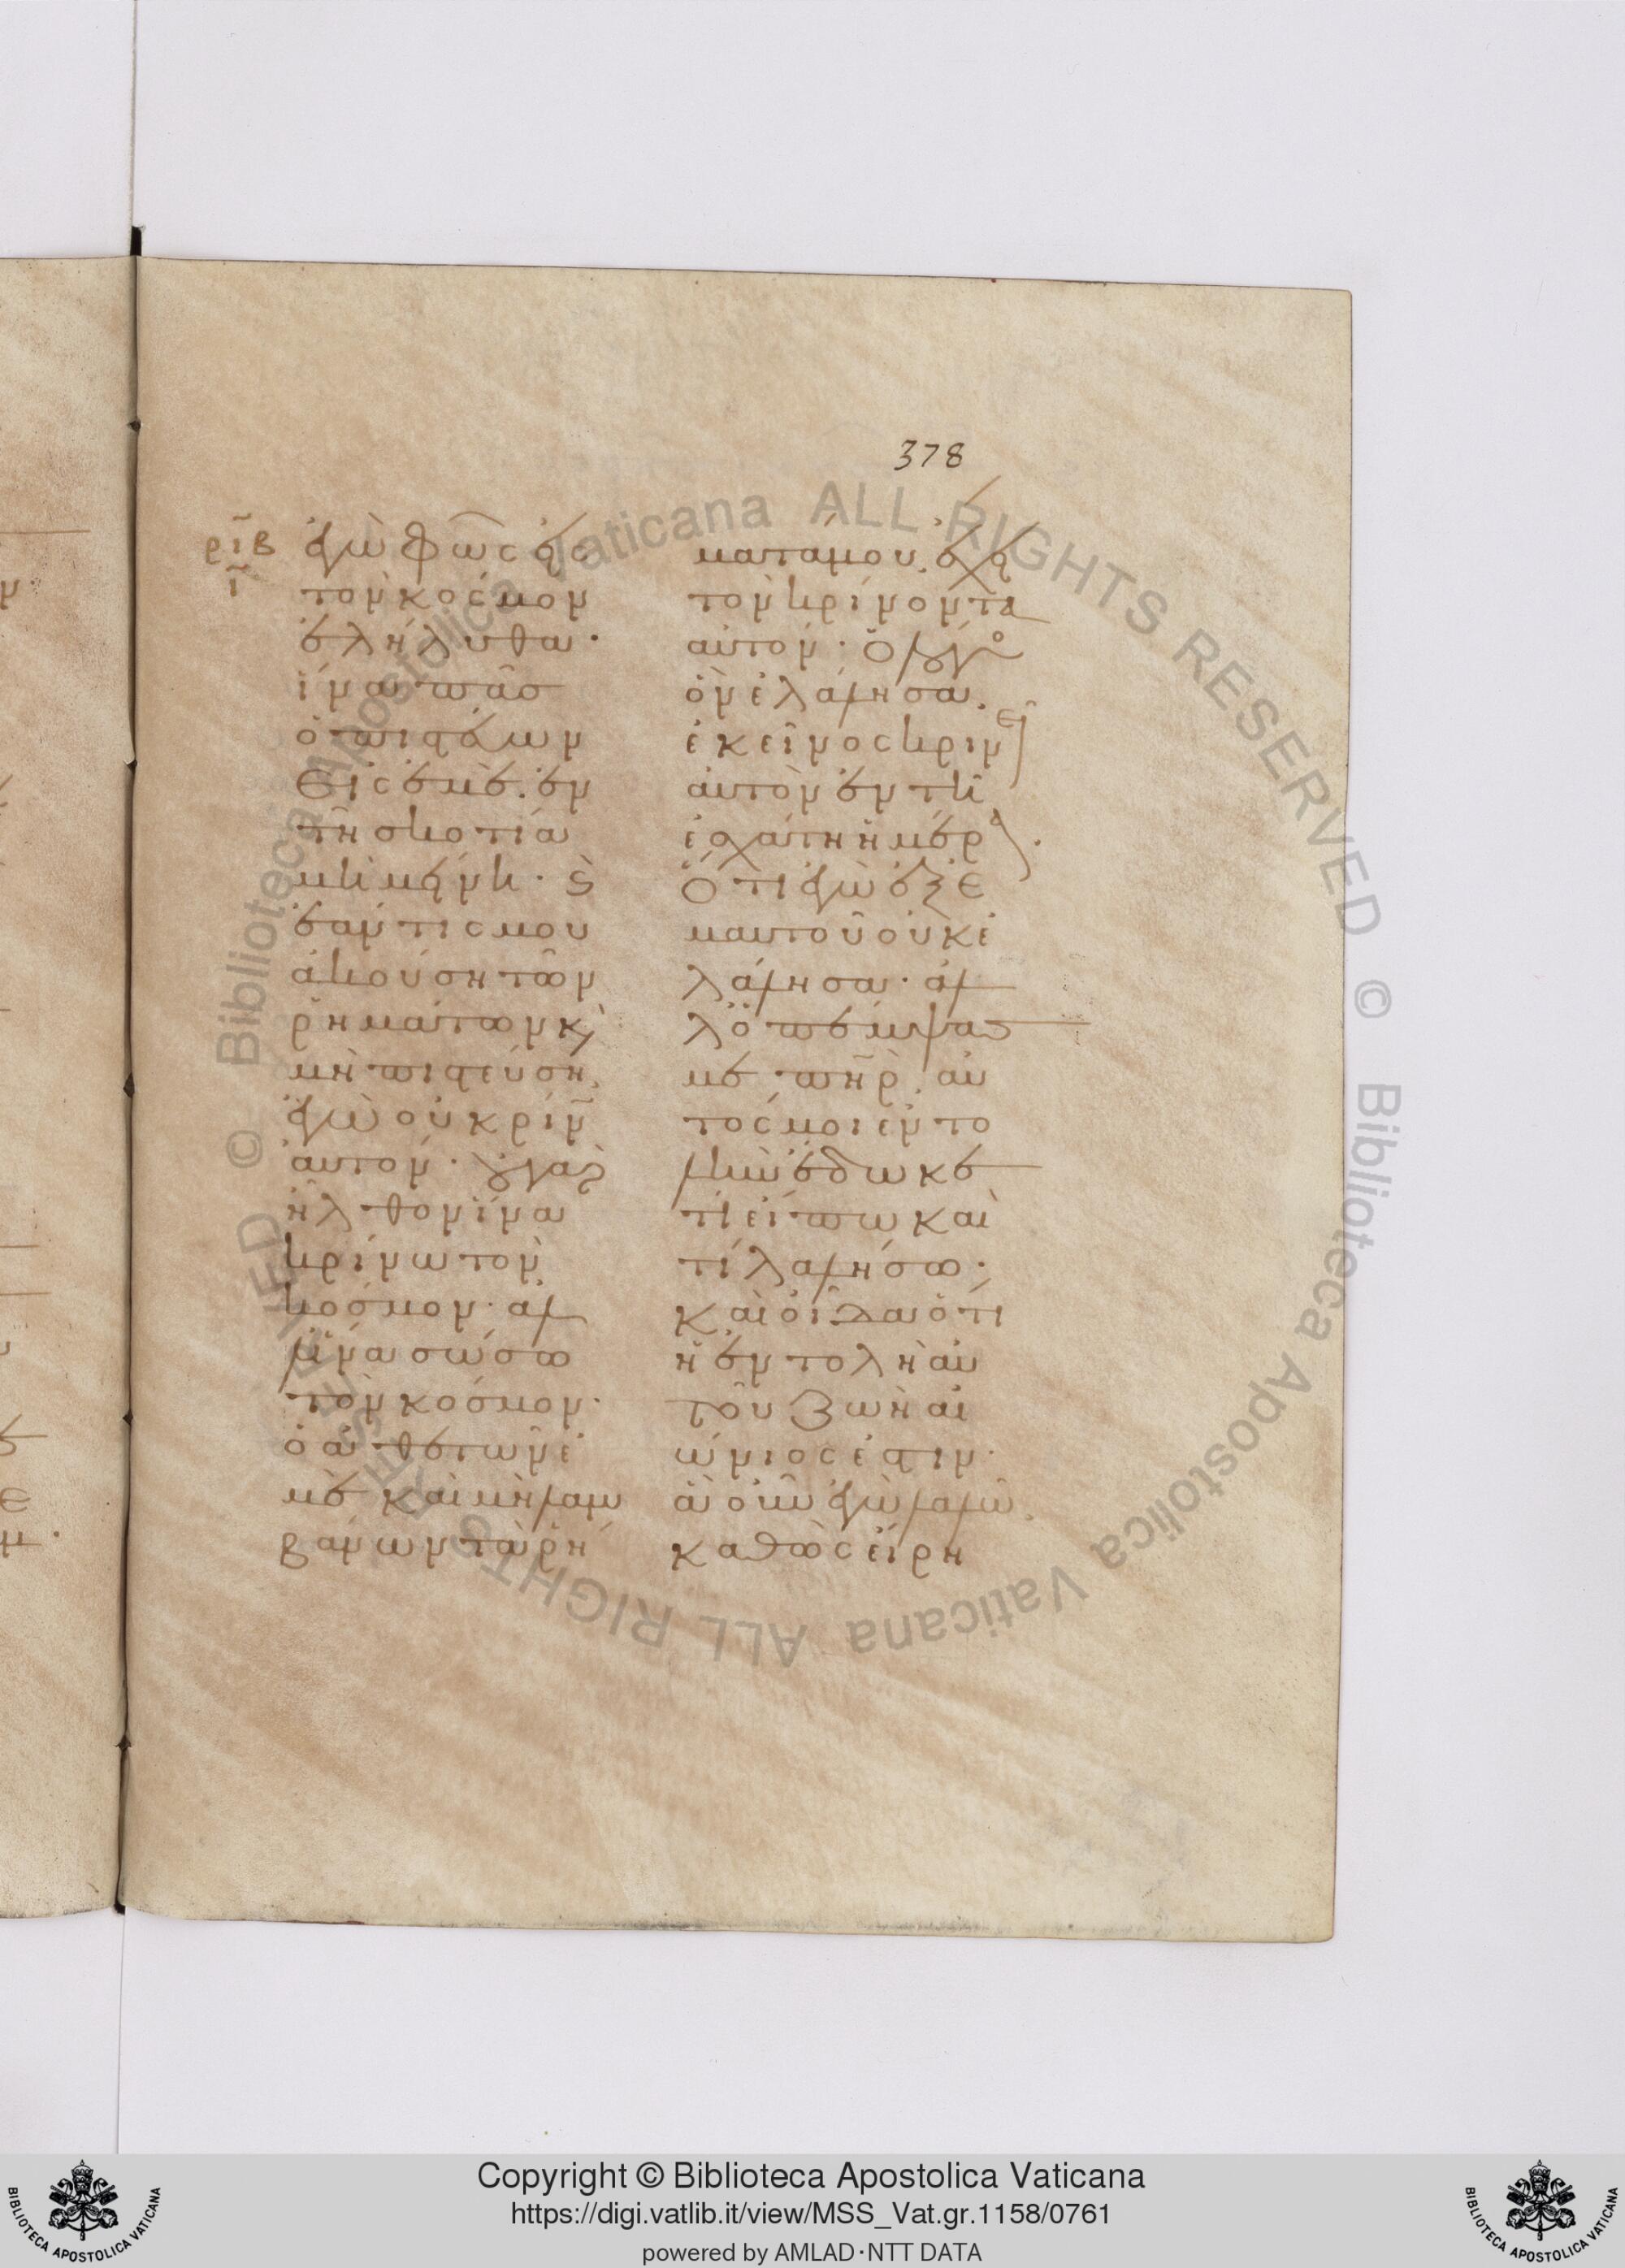 378
ρῑβ
ῑ
ἐγὼ φῶς εἰς
τὸν κόσμον
ἐλήλυθα·
ἵνα πᾶσ
ὁ πιστεύων
εἰς ἐμὲ. ἐν
τῆ σκοτία
μὴ μείνη· ϗ
ἐάν τις μου
ἀκούση τῶν
ῥημάτων ϗ
μὴ πιστεύση,
ἐγὼ οὐ κρίν
αὐτόν· οὐ γὰρ
ἦλθον ἵνα
κρίνω τὸν
κόσμον· ἀλ
λ' ἵνα σώσω
τὸν κόσμον·
ὁ ἀθετῶν ἐ
μὲ καὶ μὴ λαμ
βάνων τὰ ῥή
ματά μου. ἔχει
τὸν κρίνοντα
αὐτόν· Ὁ λόγο
ὃν ἐλάλησα.
ἐκεῖνος κρινεῖ
αὐτὸν ἐν τῆ
ἐσχάτη ἡμέρα.
Ὅτι ἐγὼ ἐξ ἐ
μαυτοῦ οὐκ ἐ
λάλησα· ἀλ
λ' ὁ πέμψασ
με πη̄ρ. αὐ
τός μοι ἐντο
λὴν ἔδωκε
τί εἴπω καὶ
τί λαλήσω·
καὶ οἶδα ὅτι
ἡ ἐντολὴ αὐ
τοῦ ζωὴ αἰ
ώνιος ἐστιν·
ἃ οὖν ἐγὼ λαλῶ.
καθὼς εἴρη
Copyright © Biblioteca Apostolica Vaticana
https://digi.vatlib.it/view/MSS_Vat.gr.1158/0761
powered by AMLAD·NTT DATA
BIBLIOTECA APOSTOLICA VATICANA
BIBLIOTECA APOSTOLICA VATICANA
© Biblioteca Apostolica Vaticana ALL RIGHTS RESERVED
© Biblioteca Apostolica Vaticana ALL RIGHTS RESERVED